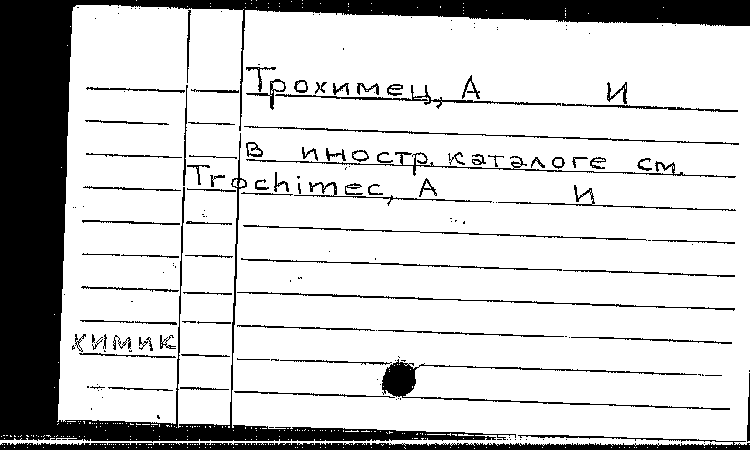 Трохимец, А И
в иностр. каталоге см.
Trochimec, А И
химик